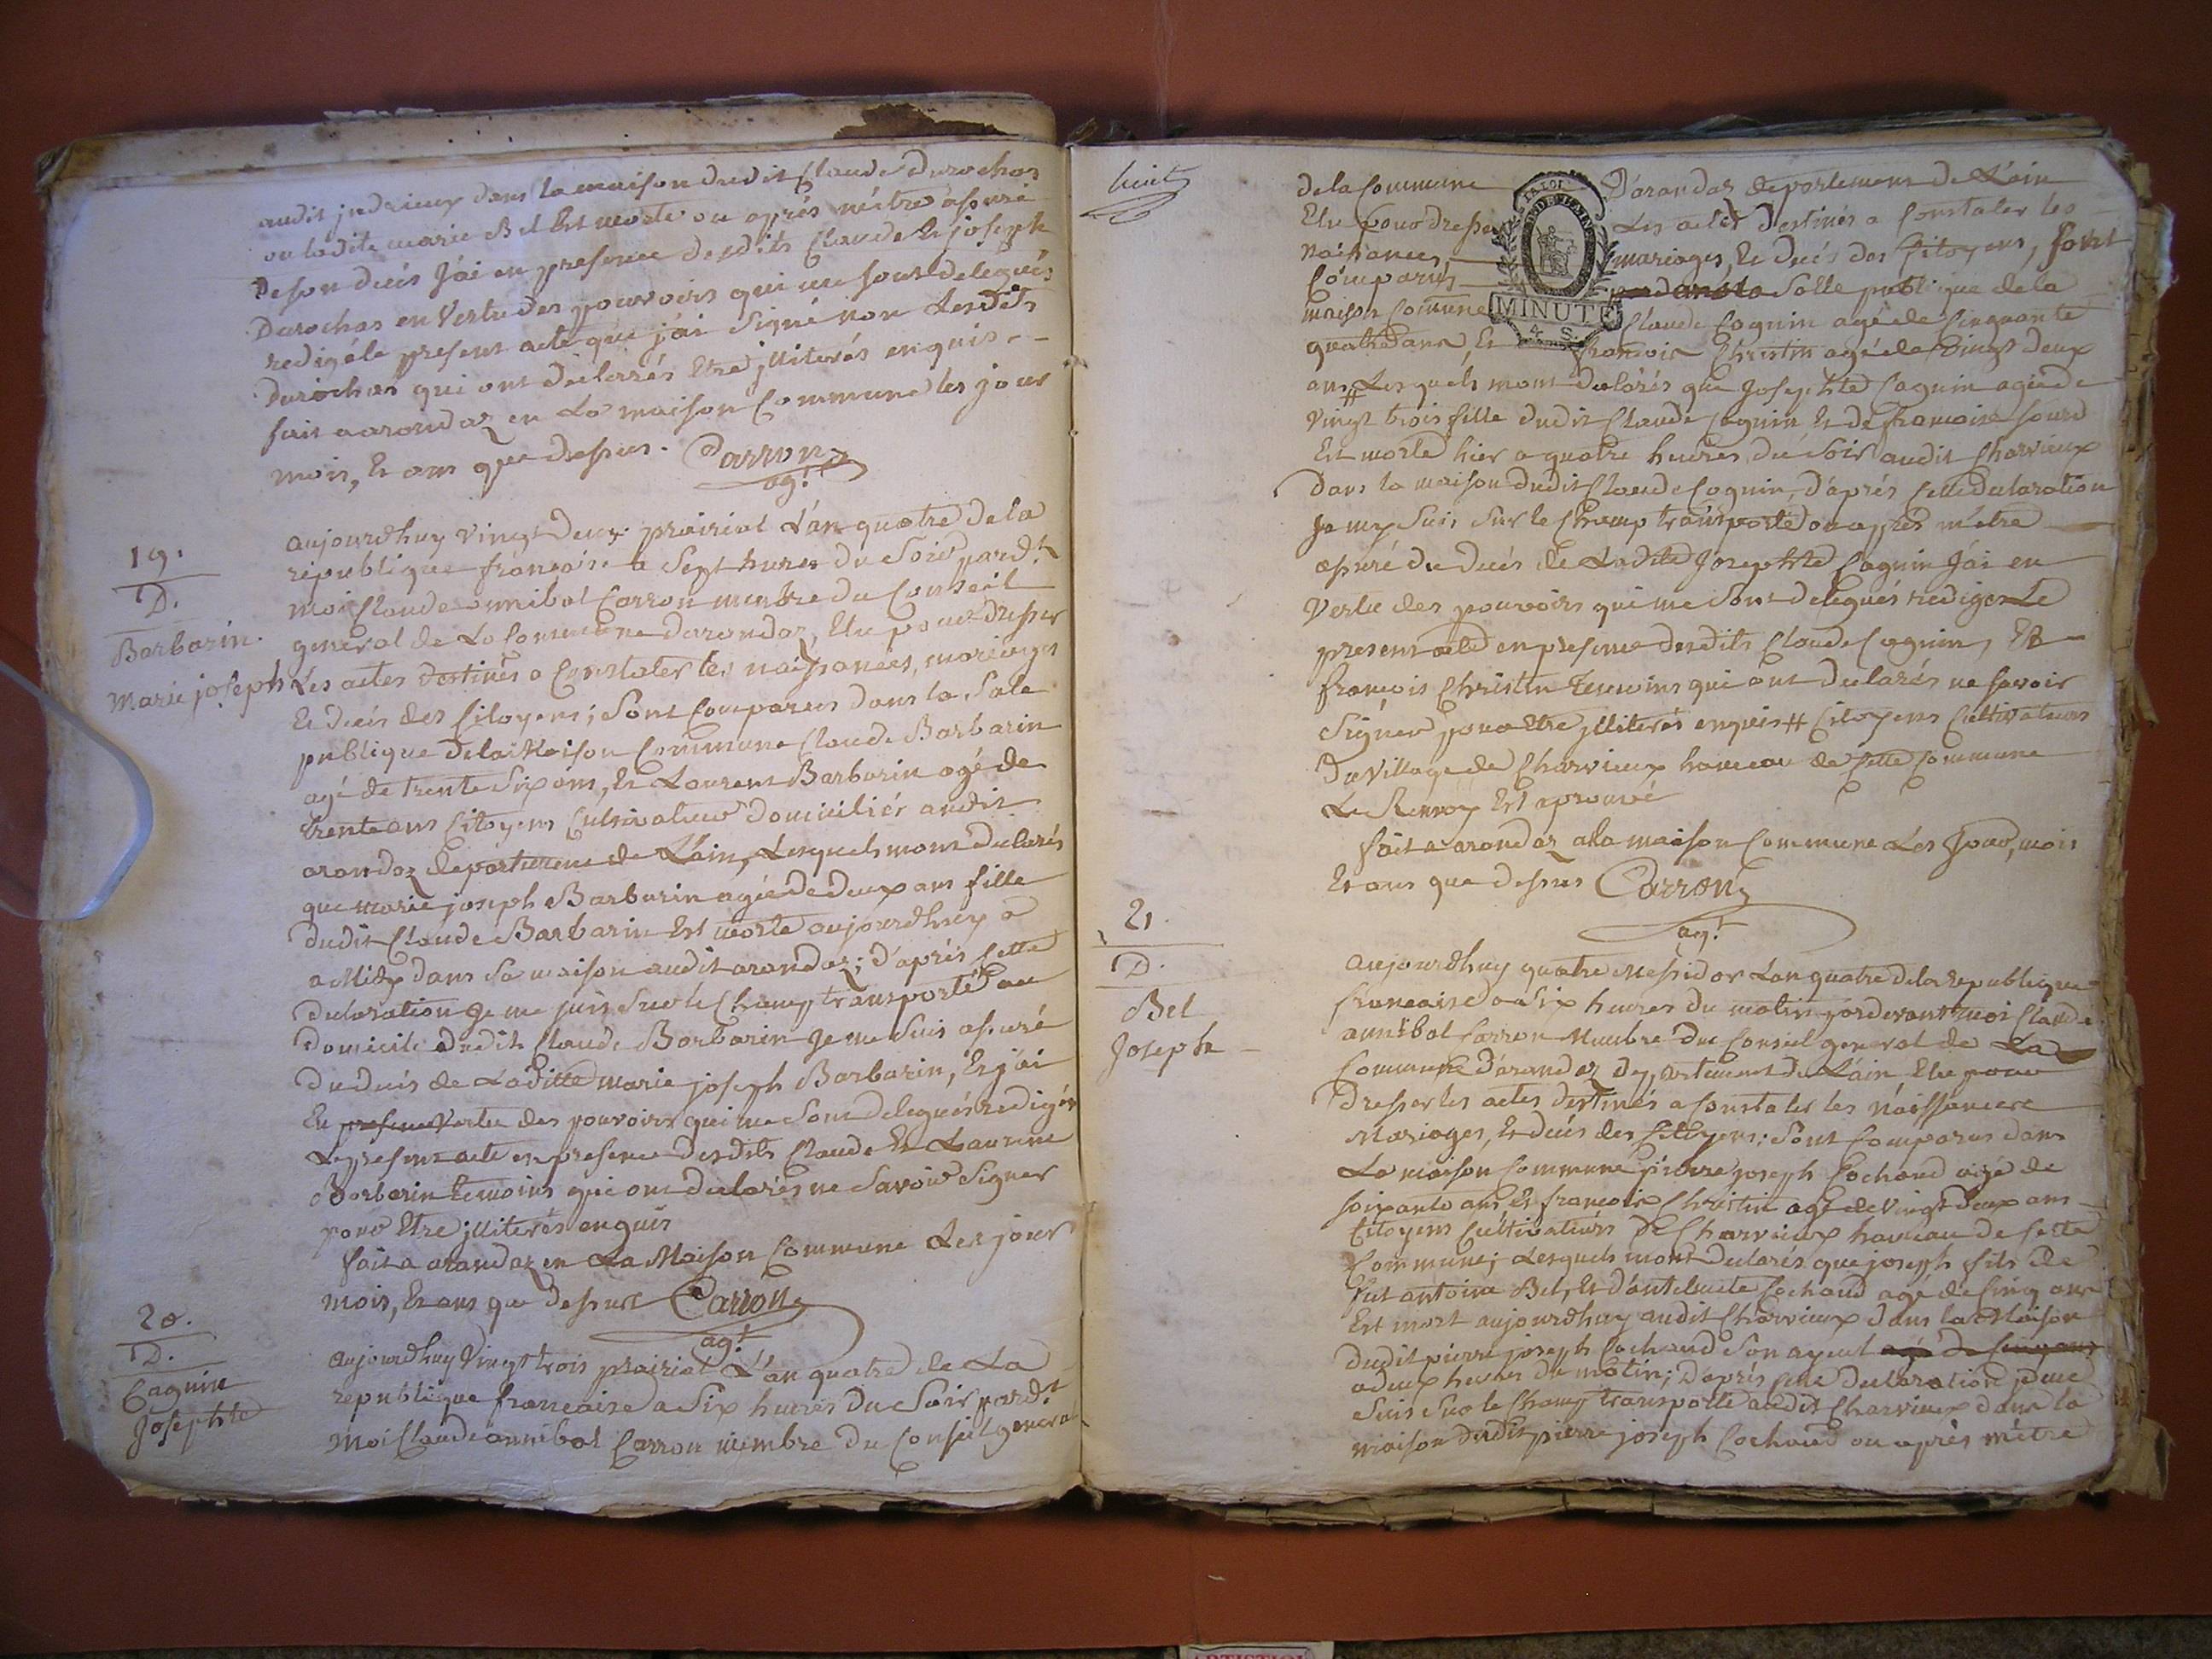 audit indrieux dans la maison dudit Claude Durochas
ou ladite marie Bel Est morte ou aprés m'étre assuré
De son decés J'ai en presence desdits Claude Et joseph
Durochas en Vertu des pouvoirs qui me sont delegués
redigé le present acte que j'ai Signé non Lesdits
Durochas qui ont declarés Etre jlliterés enquis -
fait a arandaz en La maison Commune les jour
mois, Et ans que dessus. Carron
agt
19.
D.
Barbarin.
Marie joseph
aujourdhuy vingt Deux prairial L'an quatre de la
republique francaise a Sept hures du Soir pardt
moi Claude annibal Carron membre du Conseil
general de La Commune darandaz, Elu pour dresser
Les actes destinés a Constater les naissances, mariages
Et decés des Citoyens; Sont Comparus dans la Sale
publique de la Maison Commune Claude Barbarin
agé de trente Six ans, Et Laurent Barbarin agé de
trente ans Citoyens Cultivateurs domiciliés audit
arandaz departement de L'ain, Lesquels m'ont declarés
que marie joseph Barbarin agée de deux ans fille
dudit Claude Barbarin Est morte aujourdhuy a
a Midy dans sa maison audit arandaz; d'aprés cette
declaration je me suis sur le Champ transporté au
domicile dudit Claude Barbarin Je me Suis assuré
du decés de Laditte marie joseph Barbarin, Et j'ai
En presence Vertu des pouvoirs qui me Sont delegués redigés
Le present acte en presence desdits Claude Et Laurent
Barbarin temoins qui ont declarés ne Savoir Signer
pour Etre jlliterés enquis
fait a arandaz en La Maison Commune Les jour
mois, Et ans que dessus Carron
agt
20.
D.
Caguin
Josephte
aujourdhuy Vingt trois prairial L'an quatre de La
republique francaise a Six heures du Soir pardt
Moi Claude annibal Carron membre du Conseil general
huit
de la Commune D'arandaz departement de L'ain
Elu pour dresser Les actes Destinés a Constater les
naissances, mariages, Et decés des Citoyens, sont
Comparus dans la Salle publique de la
maison Commune Claude Coguin agé de Cinquante
quatre ans, Et francois Christin agé de Vingt deux
LA LOI
MINUTE
4. S.
ans # Lesquels mont declarés que Josephte Caguin agée de
Vingt trois fille dudit Claude Coguin Et de francoise sourd
Est morte hier a quatre heures du Soir audit Charvieux
Dans la maison dudit Claude Coguin, d'aprés cette declaration
Je my Suis Sur le Champ transporté ou aprés m'etre
assuré du decés de Ladite Josephte Caguin J'ai en
Vertu des pouvoirs qui me Sont delegués rediger Le
present acte en presence desdits Claude Coguin, Et
francois Christin temoins qui ont declarés ne savoir
Signer pour Etre jlliterés enquis # Citoyens Cultivateurs
Du Village de Charvieux hameau de cette Commune
Le Renvoy Est aprouvé
fait a arandaz a la maison Commune Les Jour, mois
Et ans que dessus Carron
agt
21.
D.
Bel
Joseph
aujourdhuy quatre Messidor L'an quatre de la republique
francaise a Six heures du matin pardevant moi Claude
annibal Carron Membre du Conseil general de La
Commune D'arandaz departement de L'ain Elu pour
Dresser les actes destinés a Constater les Naissances
Mariages, Et decés des Citoyens: Sont Comparus dans
La maison Commune pierre joseph Cochaud agé de
soixante ans, Et francois Christin agé de Vingt deux ans
Citoyens Cultivateurs de Charvieux hameau de cette
Commune; Lesquels mont declarés que joseph fils de
fut antoine Bel, Et d'antelmette Cochaud agé de Cinq ans
Est mort aujourdhuy audit Charvieux dans la Maison
dudit pierre joseph Cochaud Son ayeul agé de Cinq ans
a deux heures du matin; D'aprés cette declaration je me
Suis Sur le Champ transporté audit Charvieux dans la
maison dudit pierre joseph Cochaud ou aprés m'étre